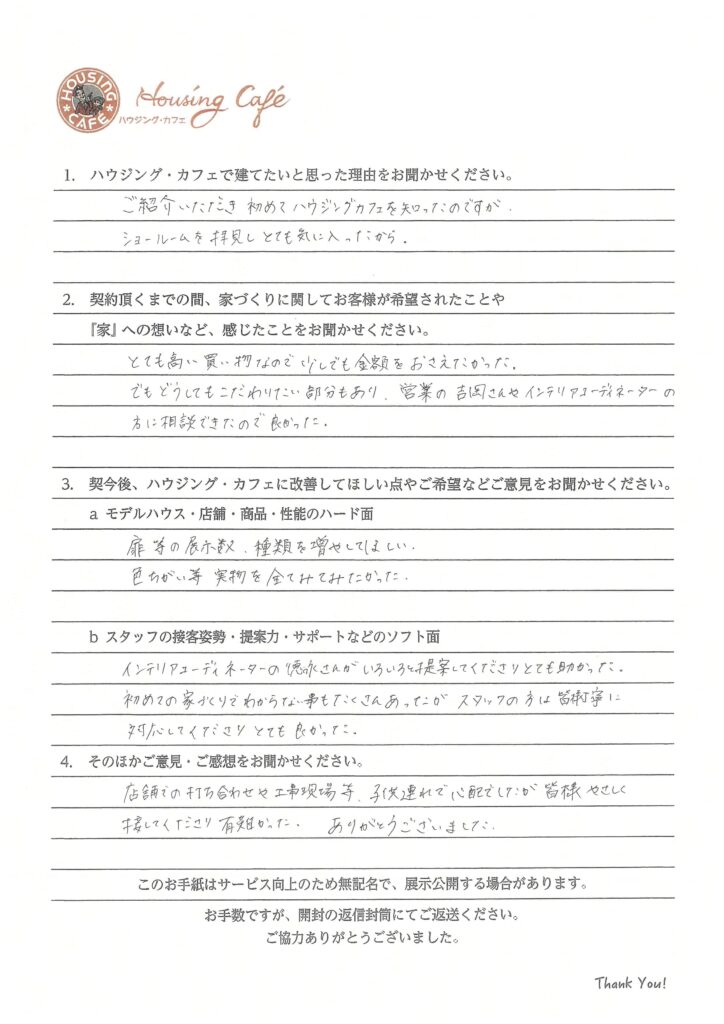 HOUSING CAFÉ
Housing Café
ハウジング・カフェ
1. ハウジング・カフェで建てたいと思った理由をお聞かせください。
ご紹介いただき 初めてハウジングカフェを知ったのですが、
ショールームを拝見しとても気に入ったから。
2. 契約頂くまでの間、家づくりに関してお客様が希望されたことや
『家』への想いなど、感じたことをお聞かせください。
とても高い買い物なので少しでも金額をおさえたかった。
でもどうしてもこだわりたい部分もあり、営業の吉岡さんやインテリアコーディネーターの
方に相談できたので良かった。
3. 契今後、ハウジング・カフェに改善してほしい点やご希望などご意見をお聞かせください。
a モデルハウス・店舗・商品・性能のハード面
扉等の展示数、種類を増やしてほしい。
色ちがい等 実物を全てみてみたかった。
b スタッフの接客姿勢・提案力・サポートなどのソフト面
インテリアコーディネーターの徳永さんがいろいろと提案してくださりとても助かった。
初めての家づくりでわからない事もたくさんあったが スタッフの方は皆様丁寧に
対応してくださり とても良かった。
4. そのほかご意見・ご感想をお聞かせください。
店舗での打ち合わせや工事現場等、子供連れで心配でしたが皆様やさしく
接してくださり有難かった。 ありがとうございました。
このお手紙はサービス向上のため無記名で、展示公開する場合があります。
お手数ですが、開封の返信封筒にてご返送ください。
ご協力ありがとうございました。
Thank You!